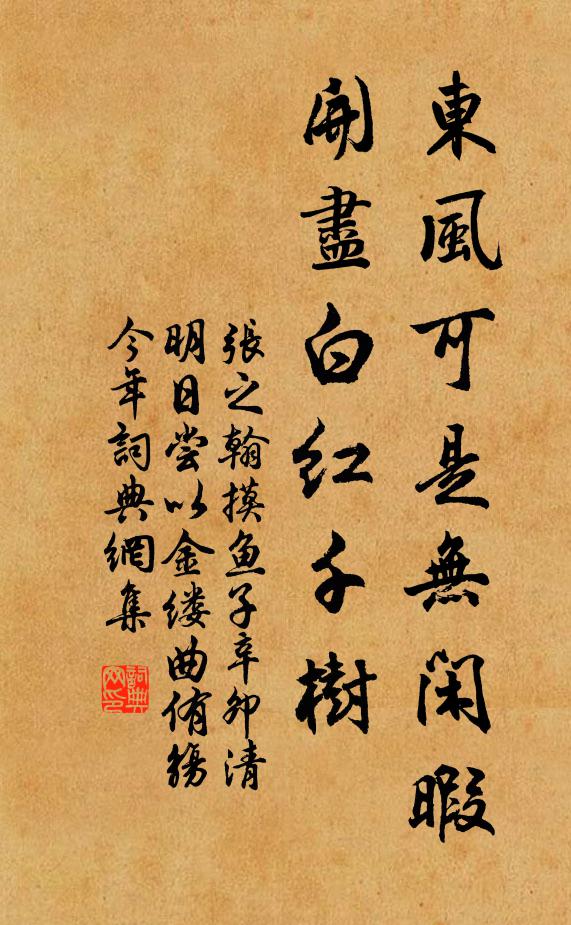 東風可是無閑暇
開盡白紅千樹
張之翰摸魚子辛卯清
明日嘗以金缕曲侑觴
今年詞典網集
詞典
网印